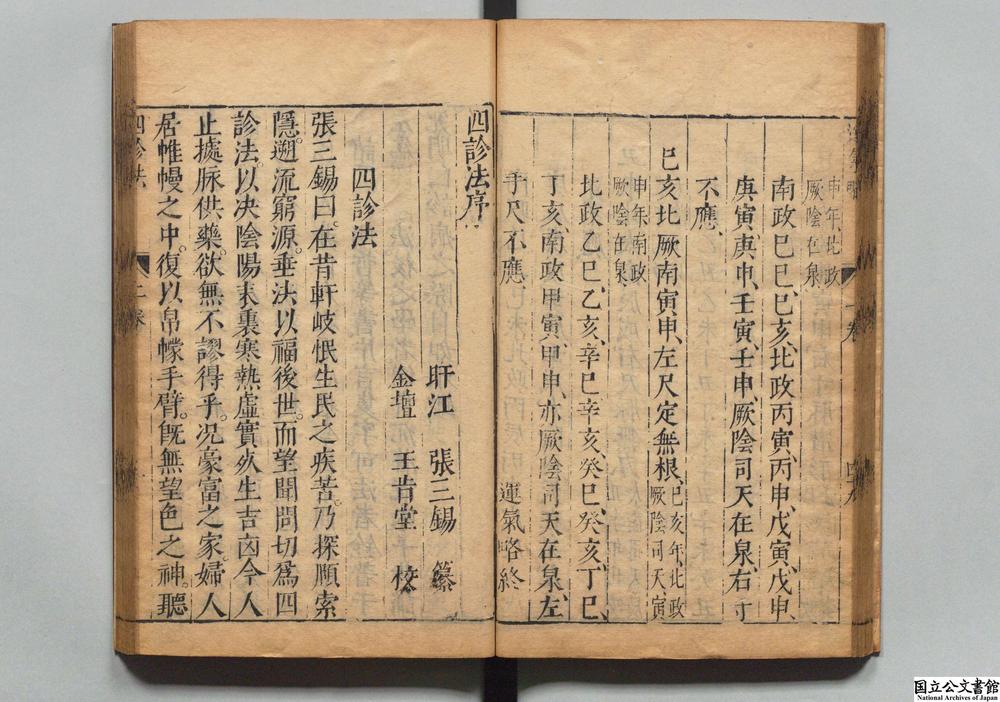 申年北政
厥陰在泉
南政巳巳、巳亥、北政丙寅、丙申、戊寅、戊申、
庚寅、庚申、壬寅、壬申、厥陰司天在泉、右寸
不應、
巳亥北厥南寅申、左尺定無根、巳亥年北政厥陰司天、寅
申年南政
厥陰在泉
北政乙巳、乙亥、辛巳、辛亥、癸巳、癸亥、丁巳、
丁亥、南政甲寅、甲申、亦厥陰司天在泉、左
手尺不應、 運氣略終
四診法序
盱江 張三錫 纂
金壇 王肯堂 校
四診法
張三錫曰。在昔軒岐恨生民之疾苦。乃探賾索
隱。遡流窮源。垂法以福後世。而望聞問切爲四
診法。以决陰陽表裏寒熱虛實死生吉凶。今人
止據脉供藥。欲無不謬得乎。况豪富之家。婦人
居帷幔之中。復以帛幪手臂。旣無望色之神。聽
四診法 二卷
国立公文書館
National Archives of Japan